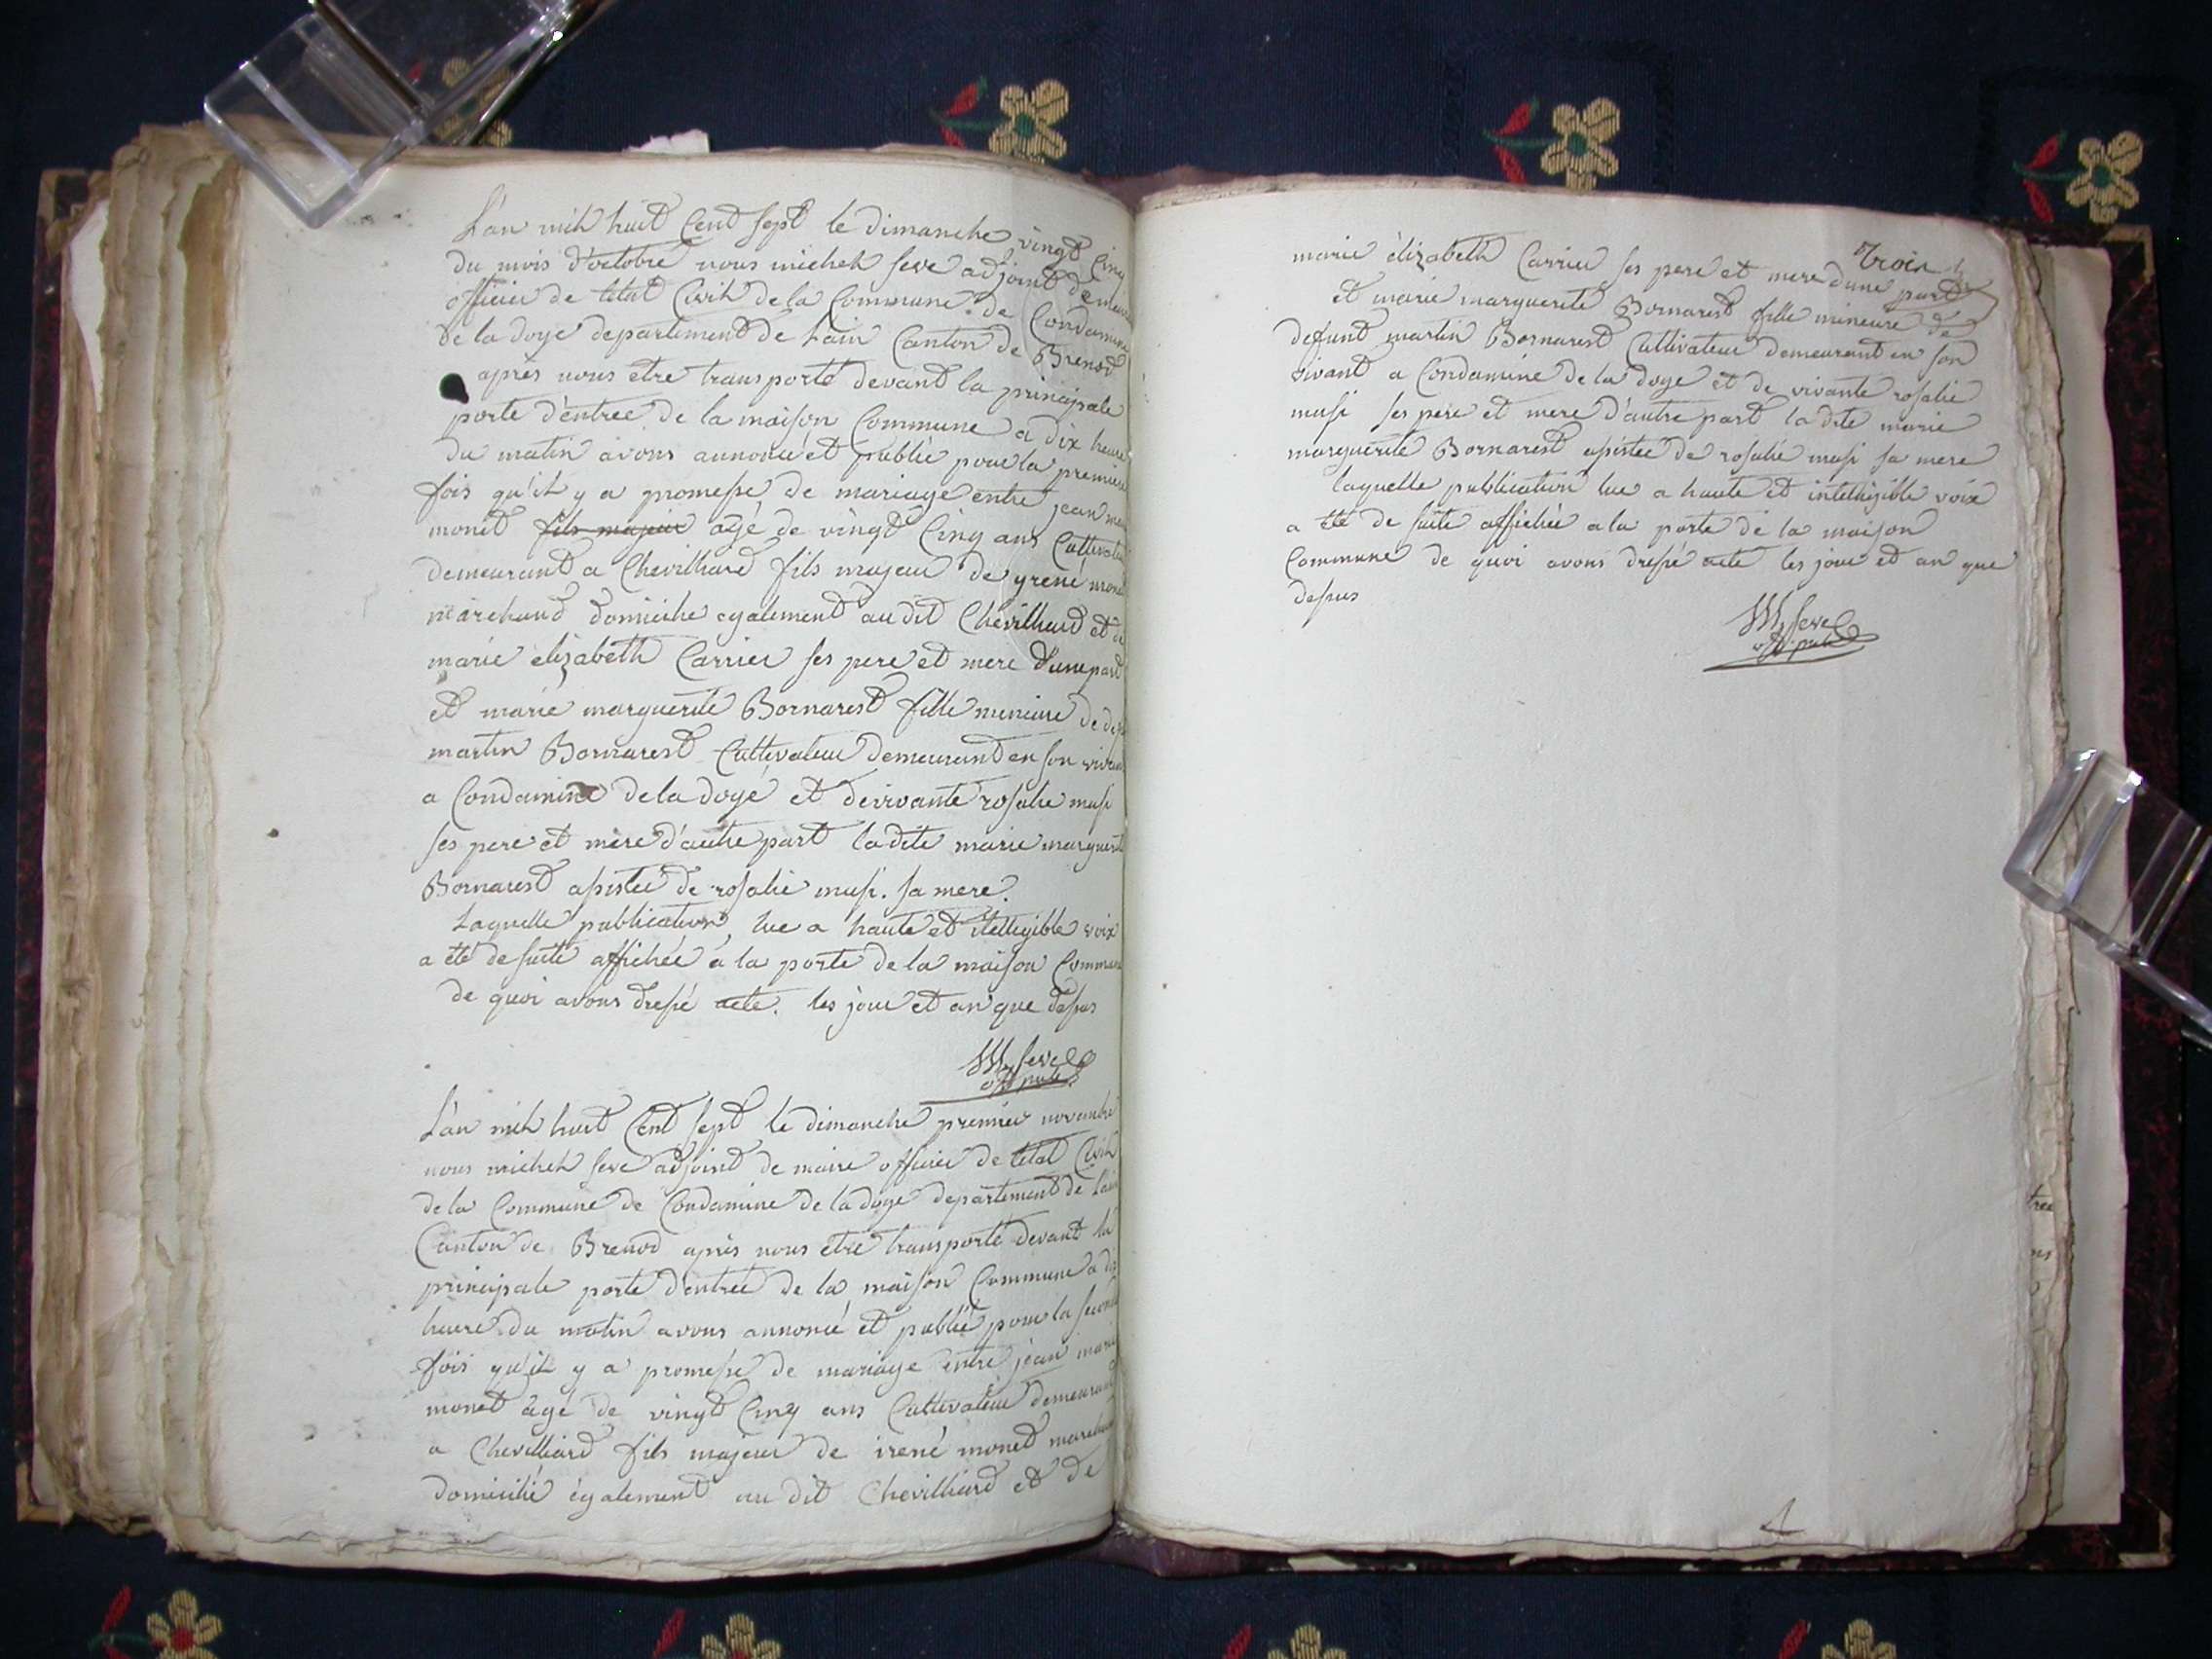 L'an mil huit Cent sept le dimanche vingt Cinq
du mois d'octobre nous michel seve adjoint de maire
officier de letat Civil de la Commune de Condamine
de la doye departement de Lain Canton de Brenod
après nous etre transporté devant la principale
porte d'entree de la maison Commune a dix heure
du matin avons annoncé et publié pour la premiere
fois qu'il y a promesse de mariage entre jean
monet fils majeur agé de vingt Cinq ans Cultivateur
demeurant a Chevilliard fils majeur de yrené monet
marchand domicilie egalement au dit Chevilliard et de
marie elizabeth Carrier ses pere et mere d'une part
et marie marguerite Bornarest fille mineure de
martin Bornarest Cultivateur demeurant en son vivant
a Condamine de la doye et de vivante rosalie musi
ses pere et mere d'autre part ladite marie marguerite
Bornarest assistée de rosalie musi. sa mere.
Laquelle publication, lue a haute et itelligible voix
a été de suite affichée a la porte de la maison Commune
de quoi avons dressé acte. les jour et an que dessus
M seve
L'an mil huit Cent sept le dimanche premier novembre
nous michel seve adjoint de maire officier de letat Civil
de la Commune de Condamine de la doye departement de Lain
Canton de Brenod après nous etre transporté devant la
principale porte dentrée de la maison Commune a dix
heure du matin avons annoncé et publié pour la seconde
fois qu'il y a promesse de mariage entre jean marie
monet âgé de vingt Cinq ans Cultivateur demeurant
a Chevilliard fils majeur de irené monet marchand
domicilié également au dit Chevilliard et de
Trois
marie élizabeth Carrier ses pere et mere dune part
et marie marguerite Bornarest fille mineure de
defunt martin Bornarest Cultivateur demeurant en son
vivant a Condamine de la doye et de vivante rosalie
musi ses pere et mere d'autre part la dite marie
marguerite Bornarest assistée de rosalie musi sa mere
laquelle publication lue a haute et intelligible voix
a été de suite affichée a la porte de la maison
Commune de quoi avons dressé acte les jour et an que
dessus
M seve